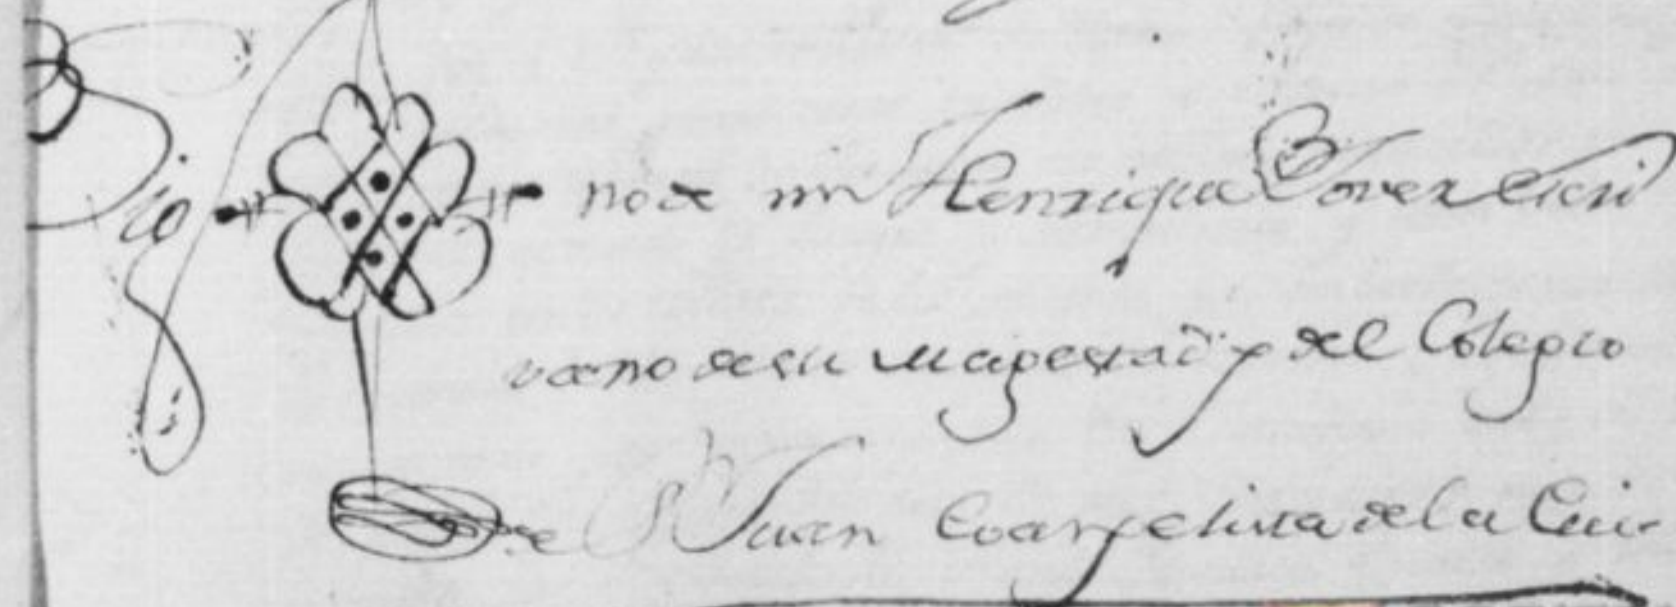 Sig no de mi Henrique Jover Escri
vano de su Magestad y del Colegio
de Sn Juan Evangelista de la Ciu-